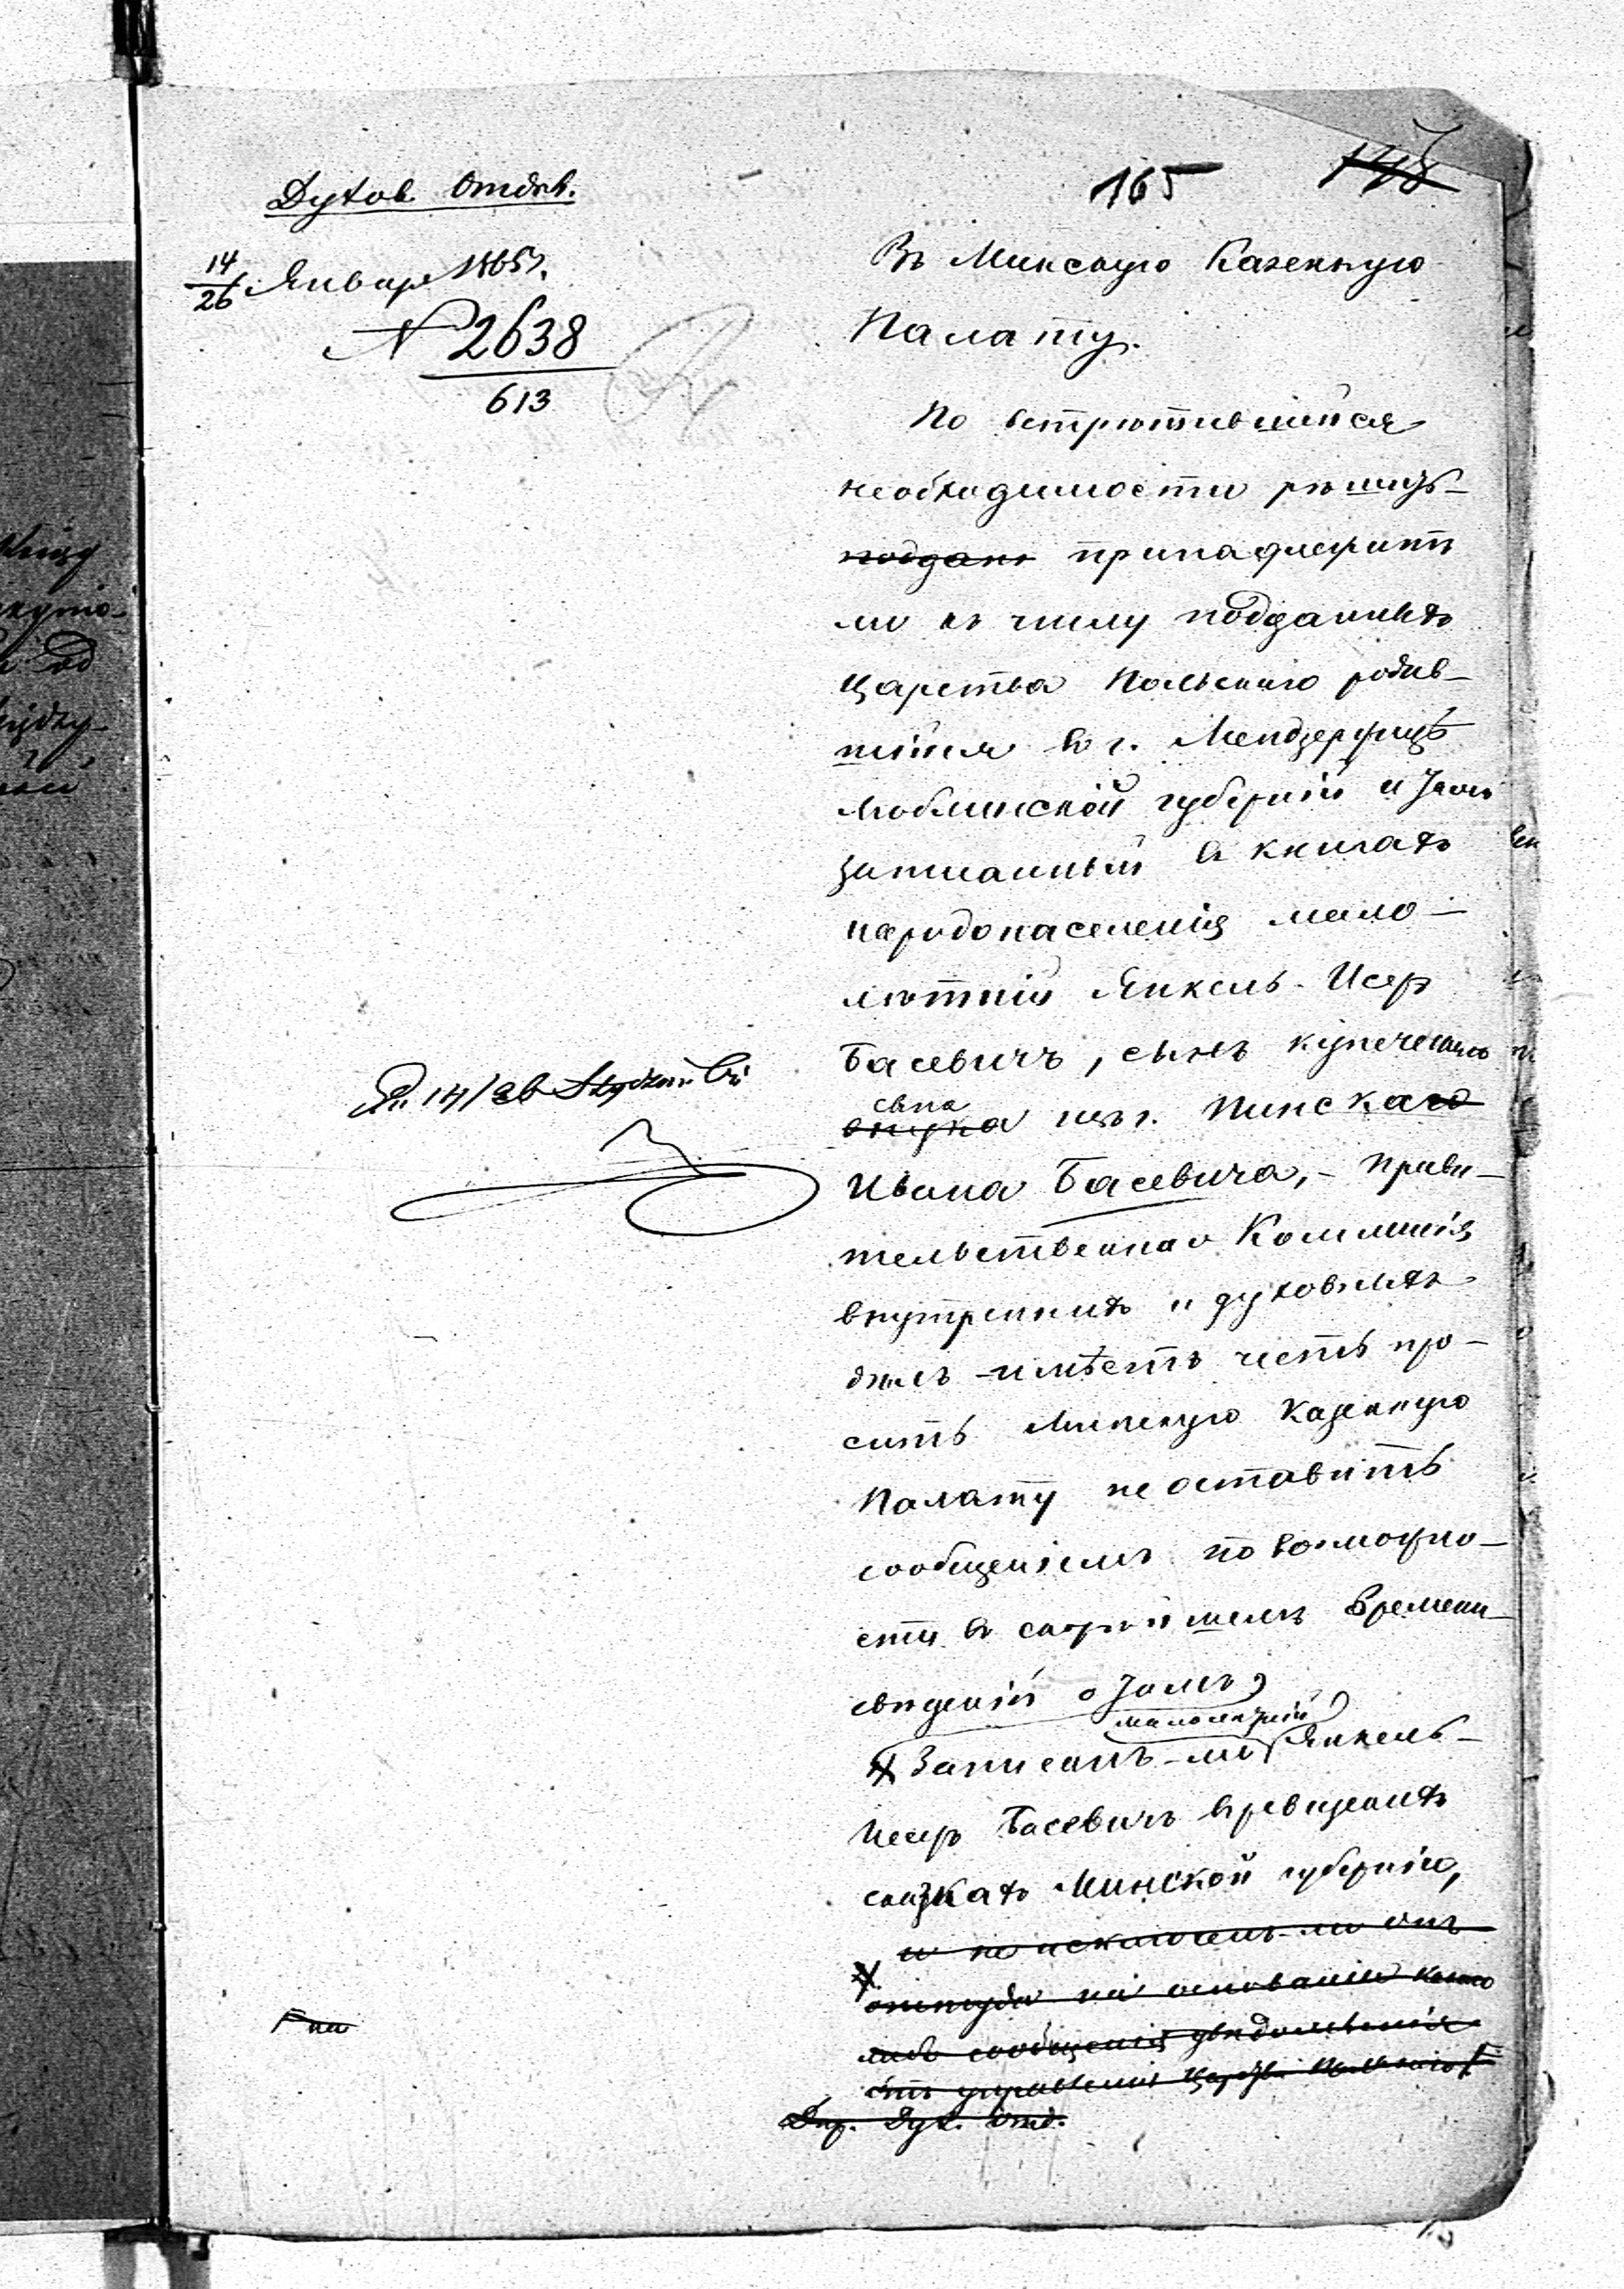 Духов. Отдѣл.
14/26 Января 1865 г.
№ 2638
613
165
Въ Минскую Казенную
Палату.
По встрѣтившейся
необходимости рѣшить
поддан принадлежитъ
ли къ числу подданныхъ
Царства Польскаго родив-
шійся въ г. Мендзержицѣ
Люблинской губерніи и тамъ
записанный въ книгахъ
народонаселенія мало-
лѣтній Янкель-Исер
Басевичъ, сынъ купеческаго
сына
внука изъ г. Пинска
Ивана Басевича, - Прави-
тельственная Коммисія
внутреннихъ и духовныхъ
дѣлъ имѣетъ честь про-
сить Минскую Казенную
Палату не оставить
сообщеніемъ по возможно-
сти въ скорѣйшемъ времени
свѣденій о томъ,
малолѣтній
Записанъ-ли Янкель-
Исеръ Басевичъ въ ревизскихъ
сказкахъ Минской губерніи,
и не исключенъ-ли онъ
оттуда на основаніи какого
либо сообщенія увѣдомленія
отъ управленія Царства Польскаго
Дир. Дух. Отд.